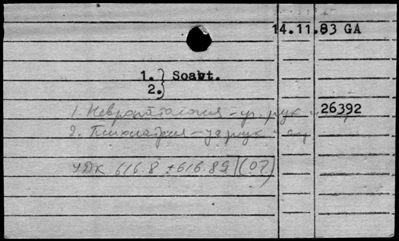 14.11.83 GA
1.} Soavt.
2.
1. Невропатология – уч. рук – 26392
2. Психиатрия – уч. рук –
УДК 616.8 + 616.89 (07)